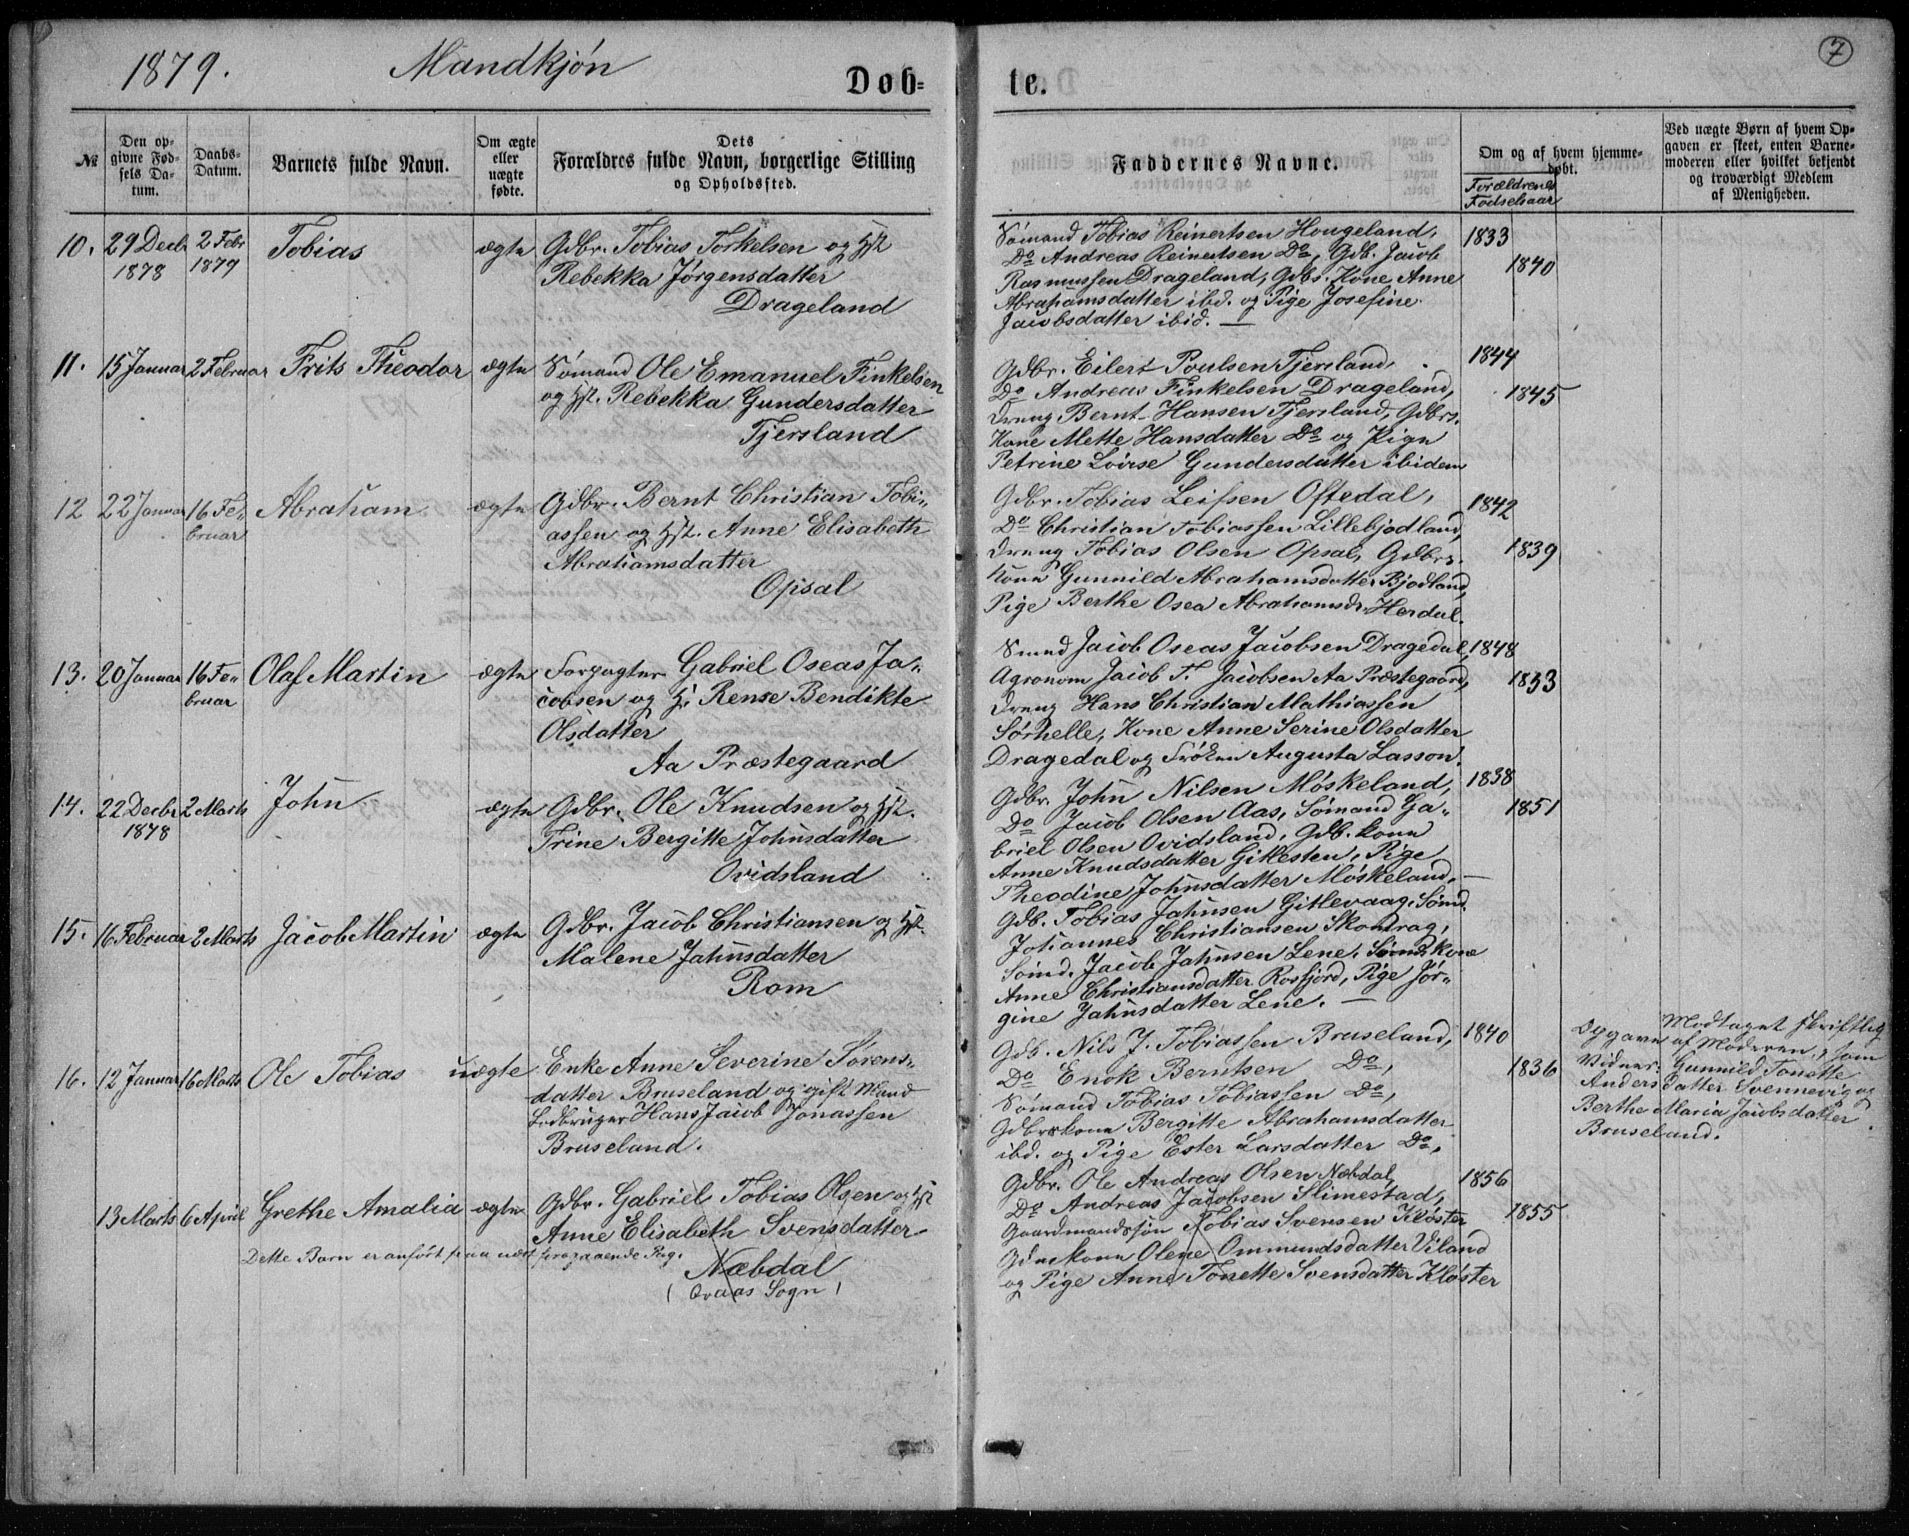 1879.
Mandkjøn
Døb=
te.
7
№
Den op-
givne Fød-
sels Da-
tum.
Daabs-
Datum.
Barnets fulde Navn.
Om ægte
eller
uægte
fødte.
Dets
Forældres fulde Navn, borgerlige Stilling
og Opholdssted.
Faddernes Navne.
Om og af hvem hjemme-
døbt.
Forældrenes
Fødselsaar
Ved uægte Børn af hvem Op-
gaven er skeet, enten Barne-
moderen eller hvilket bekjendt
og troværdigt Medlem
af Menigheden.
10.
29 Decbr
1878
2 Febr
1879
Tobias
ægte
Gdbr. Tobias Torkelsen og Hst
Rebekka Jørgensdatter
Drageland
Sømand Tobias Reinertsen Hougeland,
Do Andreas Reinertsen Do, Gdb. Jacob
Rasmussen Drageland, Gdbs. Kone Anne
Abrahamsdatter ibd. og Pige Josefine
Jacobsdatter ibid. —
1833
1840
11.
15 Januar
2 Februar
Frits Theodor
ægte
Sømand Ole Emanuel Finkelsen
og Hst. Rebekka Gundersdatter
Tjersland
Gdbr. Eilert Poulsen Tjersland,
Do Andreas Finkelsen Drageland,
Dreng Bernt Hansen Tjersland, Gdbrs.
Kone Mette Hansdatter Do og Pige
Petrine Lovise Gundersdatter ibidem
1844
1845
12
22 Januar
16 Fe-
bruar
Abraham
ægte
Gdbr. Bernt Christian Tobi-
assen og Hst. Anne Elisabeth
Abrahamsdatter
Opsal
Gdbr. Tobias Leifsen Oftedal,
Do Christian Tobiassen Lillebjodland,
Dreng Tobias Olsen Opsal, Gdbrs.
Kone Gunnild Abrahamsdatter Bjodland,
Pige Berthe Osea Abrahamsdr. Herdal.
1842
1839
13.
20 Januar
16 Fe-
bruar
Olaf Martin
ægte
Forpagter Gabriel Oseas Ja-
cobsen og H. Rense Bendikte
Olsdatter
Aa Præstegaard
Smed Jacob Oseas Jacobsen Dragedal,
Agronom Jacob T. Jacobsen Aa Præstegaard,
Dreng Hans Christian Mathiassen
Sørhelle, Kone Anne Serine Olsdatter
Dragedal og Frøken Augusta Lasson.
1848
1853
14.
22 Decbr
1878
2 Marts
John
ægte
Gdbr. Ole Knudsen og Hst.
Trine Bergitte Johnsdatter
Ovidsland
Gdbr. John Nilsen Møskeland,
Do Jacob Olsen Aas, Sømand Ga-
briel Olsen Ovidsland, Gdb. kone
Anne Knudsdatter Gitlesten, Pige
Theodine Johnsdatter Møskeland. —
1838
1851
15.
16 Februar
2 Marts
Jacob Martin
ægte
Gdbr. Jacob Christiansen og Hst.
Malene Jahnsdatter
Rom
Gdb. Tobias Jahnsen Gitlevaag, Sømd.
Johannes Christiansen Skomrag,
Sømd. Jacob Jahnsen Lene, Sømdskone
Anne Christiansdatter Rosfjord, Pige Jør-
gine Jahnsdatter Lene. —
16.
12 Januar
16 Marts
Ole Tobias
uægte
Enke Anne Severine Sørens-
datter Bruseland og gift Mand
Ledbruger Hans Jacob Jonassen
Bruseland.
Gdb. Nils J. Tobiassen Bruseland,
Do Enok Berntsen Do,
Sømand Tobias Tobiassen Do,
Gdbrskone Bergitte Abrahamsdatter
ibd. og Pige Ester Larsdatter Do.
1840
1836
Modtaget skriftlig
Opgave af Moderen, som
Vidner: Gunnild Tonette
Andersdatter Svennevig og
Berthe Maria Jacobsdatter
Bruseland.
13 Marts
6 April
Grethe Amalia
ægte
Gdbr. Gabriel Tobias Olsen og Hst
Anne Elisabeth Svensdatter
Næbdal
(Qvaas Sogn)
Dette Barn er anført paa næst foregaaende Pag.
Gdbr. Ole Andreas Olsen Næbdal,
Do Andreas Jacobsen Slimestad,
Gaardmandssøn Tobias Svensen Kloster
Gdbrskone Olene Ommundsdatter Viland
og Pige Anne Tonette Svensdatter Kloster
1856
1855